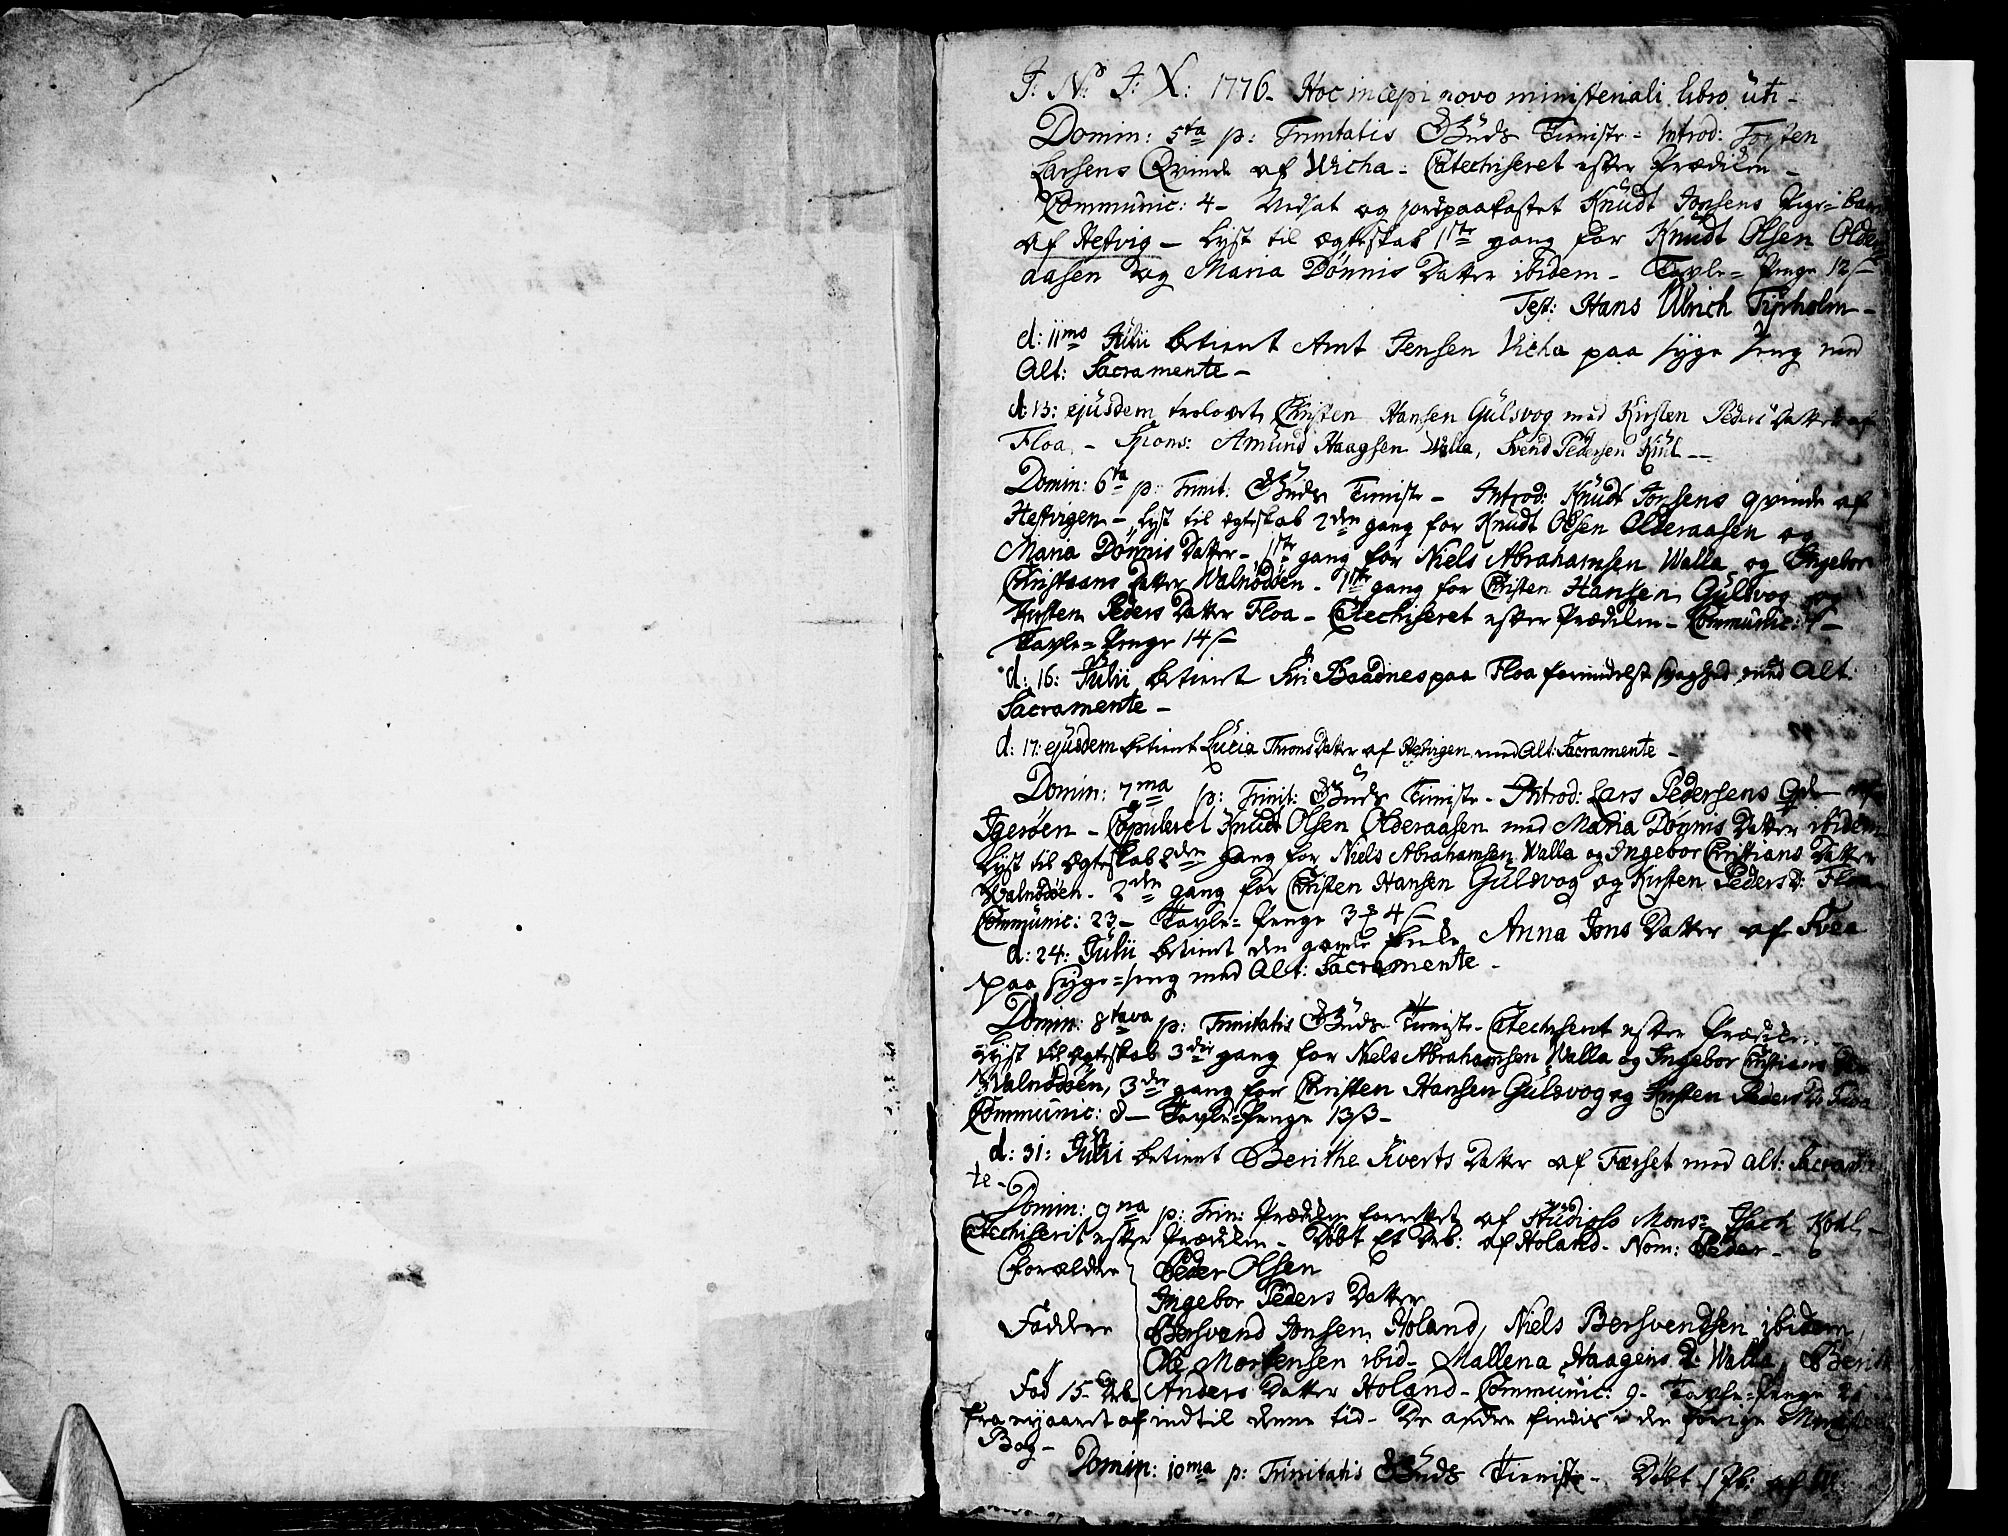 J: N: J: X: 1776. Hoc incepi novo ministeriali libro uti -
Domin: 5ta p: Trinitatis Guds Tieniste - Introd: Torsten
Larsens Qvinde af Wicha - Catechiseret efter Prædiken -
Communic: 4 - Udsat og jordpaakastet Knudt Jonsens
af Hestvig - Lyst til Ægteskab 1ste gang for Knudt Olsen Older
aasen og Maria Dønnis Datter ibidem - Tavle-Penge 12 s
Test: Hans Ulrich Tyrholm -
d: 11mo Julii betient Arnt Jensen Vicha paa Syge Seng med
Alt: Sacramente -
d: 13: ejusdem trolovet Christen Hansen Gulsvog med Kirsten Peders Datter af
Floa. - Spons: Amund Haagsen Walla, Svend Pedersen
Domin: 6ta p: Trinit: Guds Tieniste - Introd: Knudt Jonsens qvinde af
Hestvigen - Lyst til Ægteskab 2den gang for Knudt Olsen Olderaasen og
Maria Dønnis Datter - 1ste gang for Niels Abrahamsen Walla og Ingebor
Christians Datter Walnødøen - 1ste gang for Christen Hansen Gulsvog og
Kirsten Peders Datter Floa - Catechiseret efter Prædiken - Communic:
Tavle-Penge 14 s
d: 16: Julii betient Siri Baadnes paa Floa formedelst svaghed med Alt:
Sacramente -
d: 17: ejusdem betient Lucia Throns Datter af Hestvigen med Alt: Sacramente -
Domin: 7ma p: Trinit: Guds Tieniste - Introd: Lars Pedersens Qde af
Igerøen - Copuleret Knudt Olsen Olderaasen med Maria Dønnis Datter ibidem
Lyst til Ægteskab 2den gang for Niels Abrahamsen Walla og Ingebor Christians Datter
Walnødøen - 2den gang for Christen Hansen Gulsvog og Kirsten Peders D: Floa
Communic: 23 - Tavle-Penge 3 4 s
d: 24: Julii betient den gamle Anna Jons Datter af Svea
paa Syge-Seng med Alt: Sacramente -
Domin: 8tava p: Trinitatis Guds Tieniste - Catechiseret efter Prædiken
Lyst til Ægteskab 3die gang for Niels Abrahamsen Walla og Ingebor Christians
Walnødøen, 3die gang for Christen Hansen Gulsvog og Kirsten Peders D: Floa
Communic: 8 - Tavle-Penge 13 s -
d: 31: Julii betient Berithe Siverts Datter af Færset med Alt: Sacramen
te -
Domin: 9na p: Trin: Prædiken forrettet af Studioso Mons: Isach
Catechiseret efter Prædiken - Døbt Et Drb: af Holand - Nom: Peder -
Forældre Peder Olsen
Ingebor Peders Datter
Faddere Bersvend Jonsen Holand, Niels Bersvendsen ibidem,
Ole Mortensen ibid - Mallena Haagens D: Walla, Berith
Fød 15 Anders Datter Holand - Communic: 9 - Tavle-Penge
fra nyaaret af indtil denne tid - De andre findes i den forige
Bog -
Domin: 10ma p: Trinitatis Guds Tieniste - Døbt 1 af